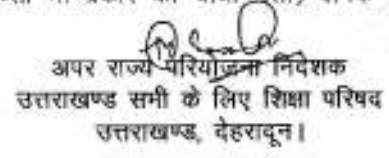 अपर राज्य परियोजना निदेशक
उत्तराखण्ड सभी के लिए शिक्षा परिषद
उत्तराखण्ड, देहरादून।